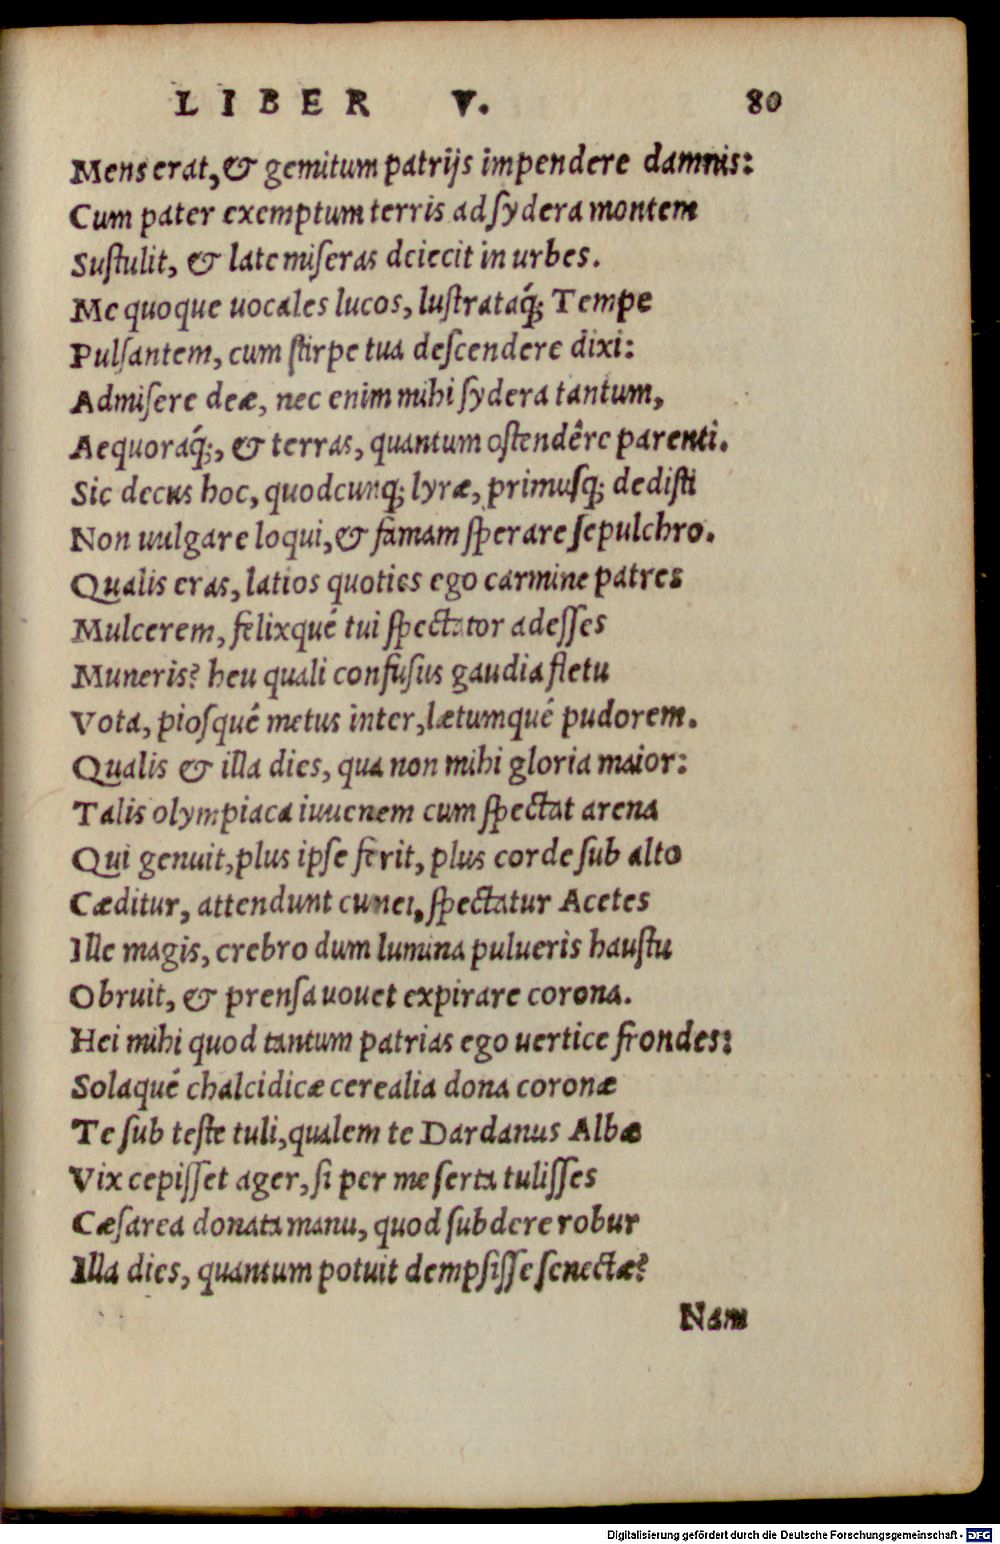 LIBER V. 80
Mens erat, & gemitum patrijs impendere damnis:
Cum pater exemptum terris ad sydera montem
Sustulit, & late miseras deiecit in urbes.
Me quoque uocales lucos, lustrataq́; Tempe
Pulsantem, cum stirpe tua descendere dixi:
Admisere deæ, nec enim mihi sydera tantum,
Aequoraq́;, & terras, quantum ostendêre parenti.
Sic decus hoc, quodcunq; lyræ, primusq; dedisti
Non uulgare loqui, & famam sperare sepulchro.
Qualis eras, latios quoties ego carmine patres
Mulcerem, felixqué tui spectator adesses
Muneris? heu quali confusus gaudia fletu
Vota, piosqué metus inter, lætumqué pudorem.
Qualis & illa dies, qua non mihi gloria maior:
Talis olympiaca iuuenem cum spectat arena
Qui genuit, plus ipse ferit, plus corde sub alto
Cæditur, attendunt cunei, spectatur Acetes
Ille magis, crebro dum lumina pulueris haustu
Obruit, & prensa uouet expirare corona.
Hei mihi quod tantum patrias ego uertice frondes:
Solaqué chalcidicæ cerealia dona coronæ
Te sub teste tuli, qualem te Dardanus Albæ
Vix cepisset ager, si per me serta tulisses
Cæsarea donata manu, quod subdere robur
Illa dies, quantum potuit dempsisse senectæ?
Nam
Digitalisierung gefördert durch die Deutsche Forschungsgemeinschaft - DFG